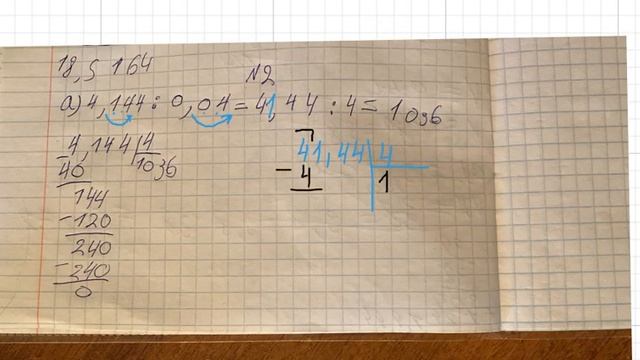 18,5 164
N2
а) 4,144 : 0,04 = 41,44 : 4 = 1036
4,144 | 4
40 | 1036
144
- 120
240
- 240
0
41,44 | 4
- 4 | 1